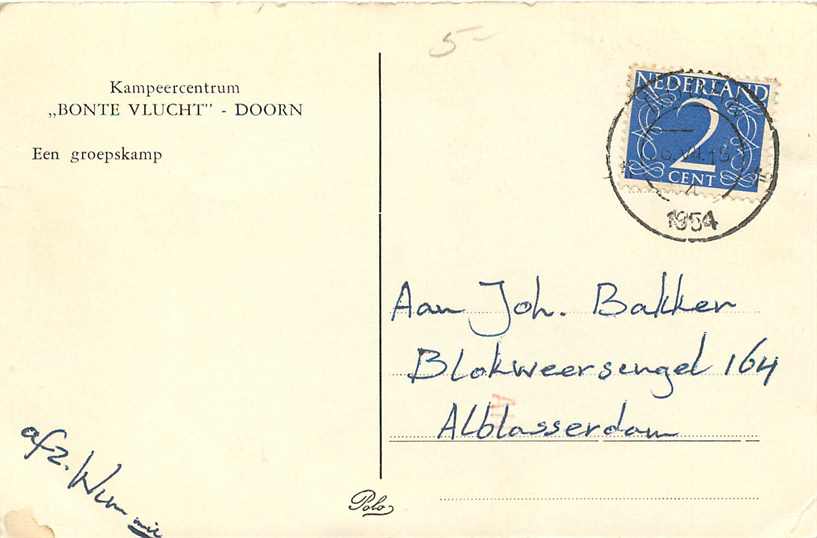 Kampeercentrum
„BONTE VLUCHT” - DOORN
Een groepskamp
5-
NEDERLAND
2
CENT
1954
Aan Joh. Bakker
Blokweersengel 164
Alblasserdam
afz. Wimmie
Polo